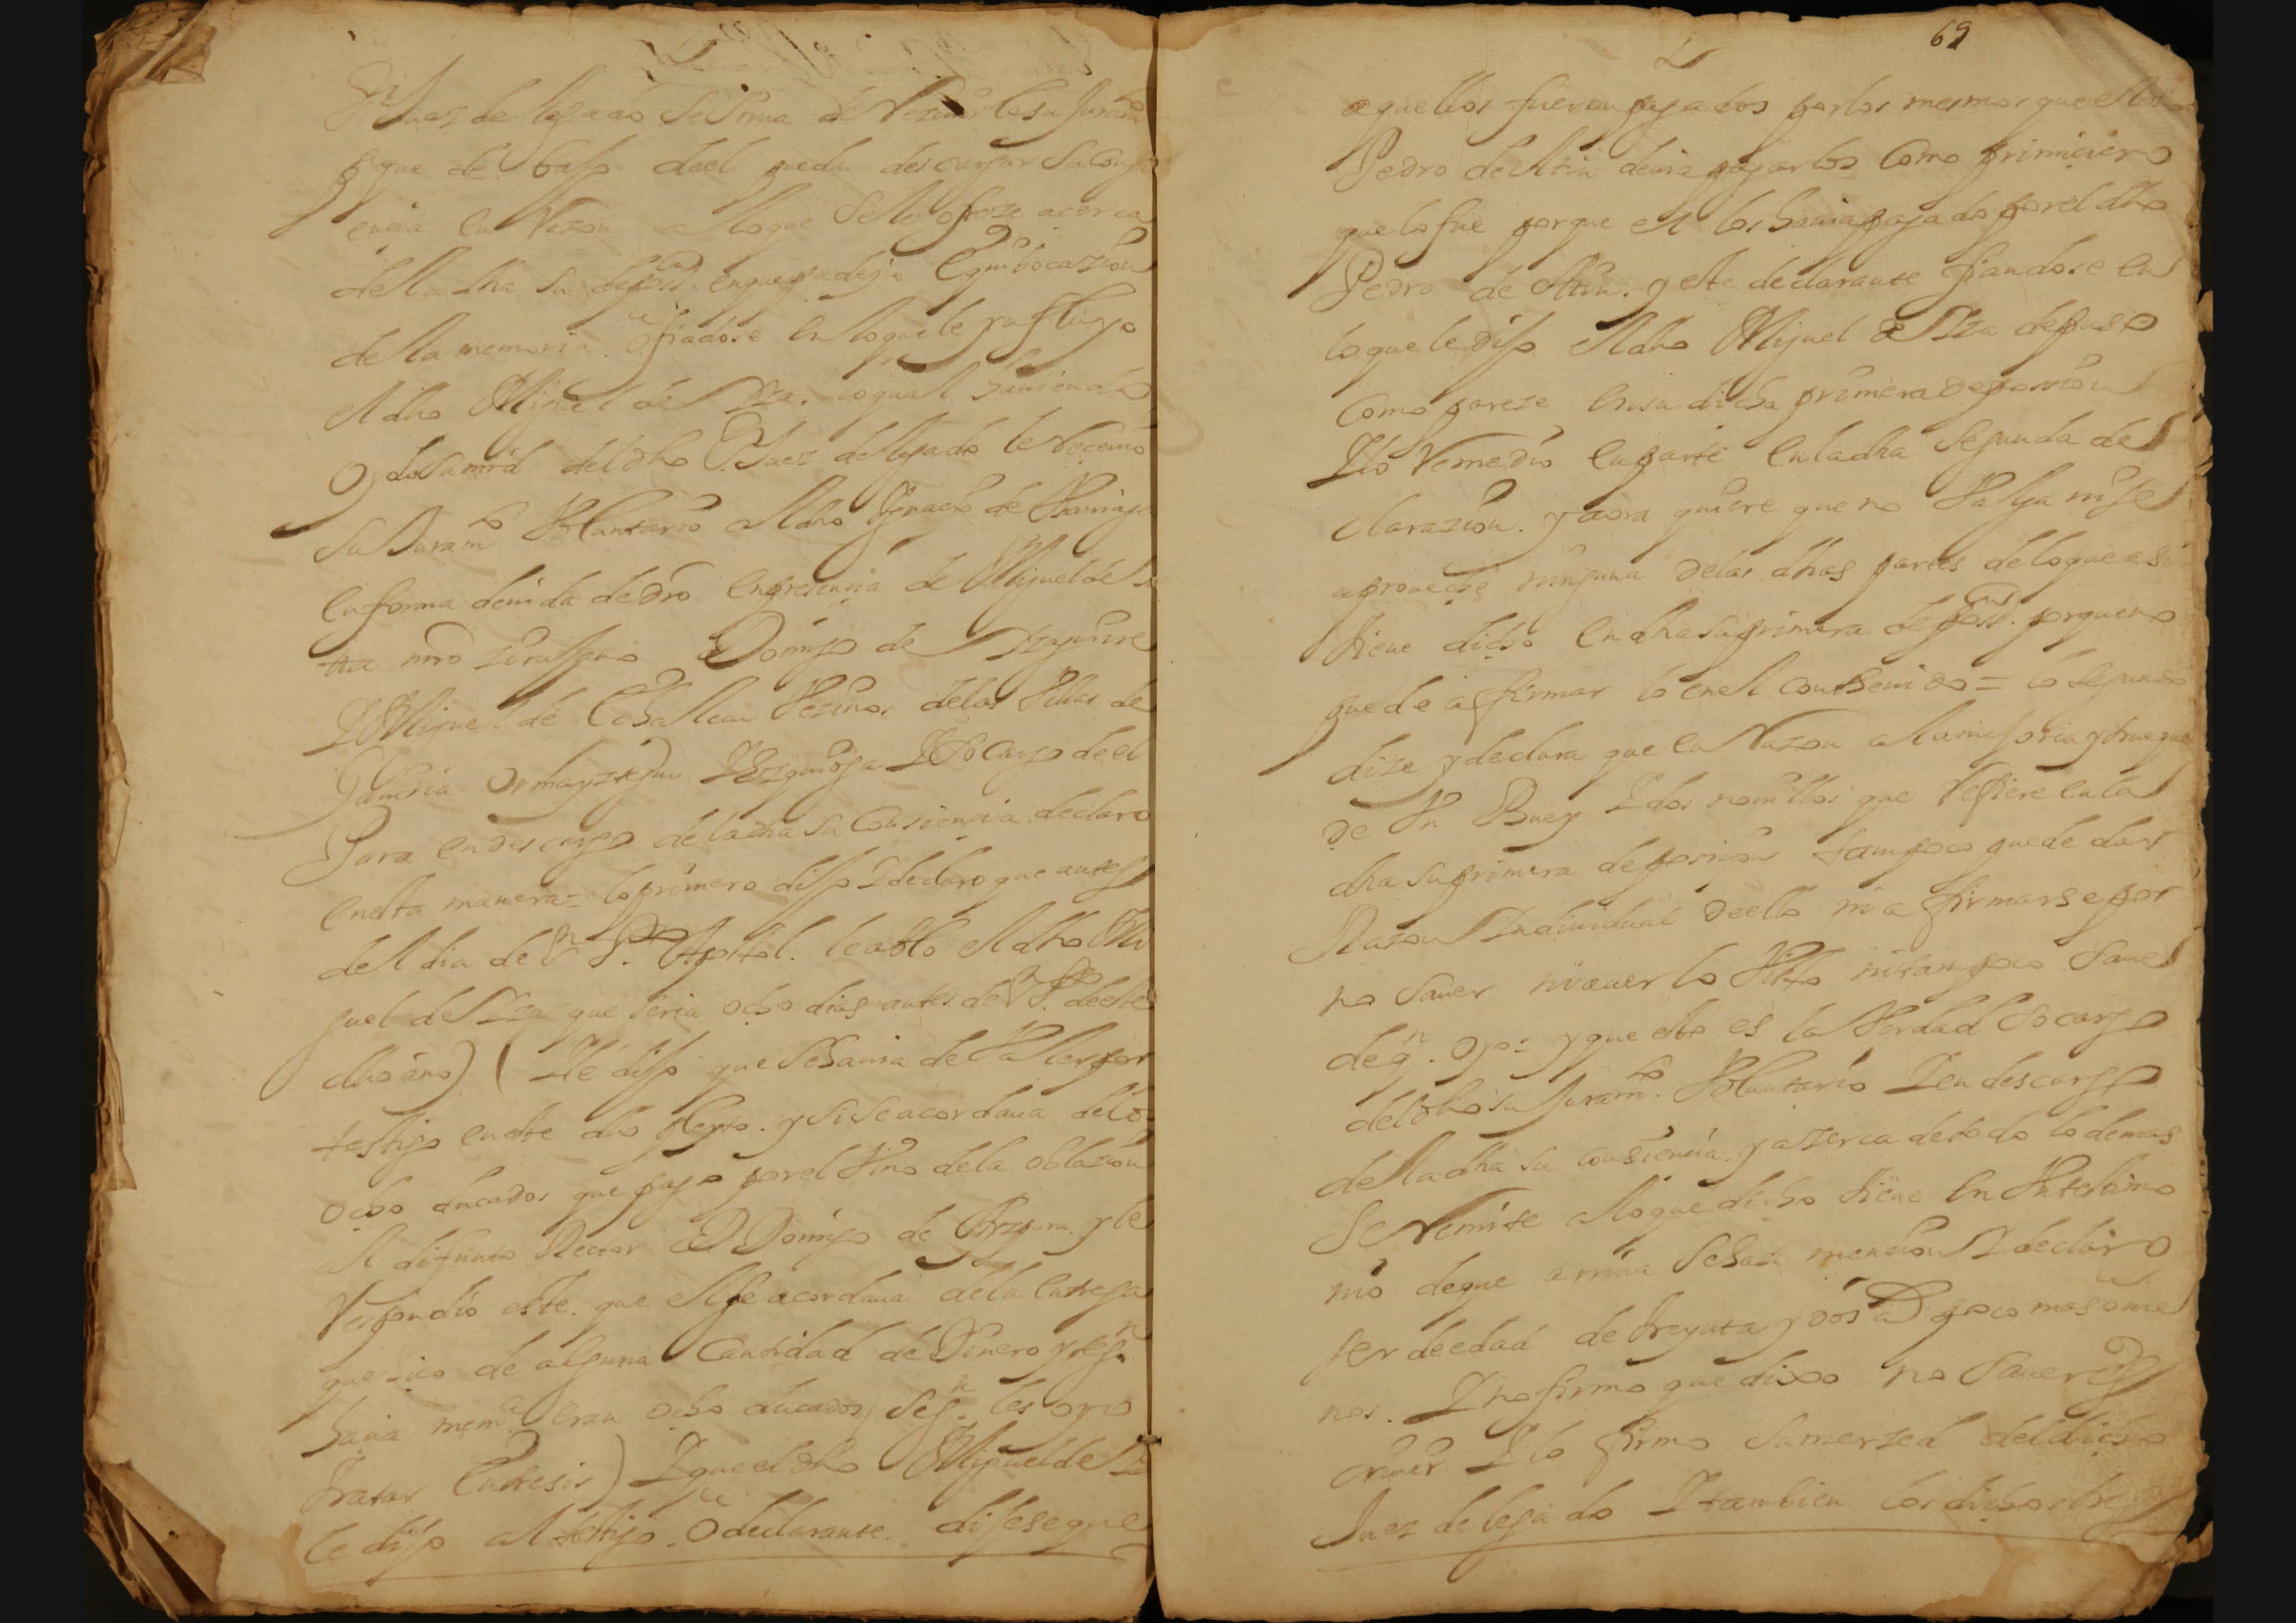 Juez delegado se sirva de Reziuirle su Juramto
y que de bajo deel pueda descargar su consi
encia en Razon a lo que se le ofreze acerca
de la dha su deposon en que padezio equibocazion
de la memoria. fiadose en lo que le ynfluyo
el dho Miguel de Yza. lo qual hauiendo
Oydo su mrd del dho Sr Juez delegado le Receuio
su Juramto Voluntario al dho Ignacio de
en forma deuida de dro en presencia de Miguel de
mro zirujano Domingo de Yzaguirre
Y Miguel de Vezinos de las Villas de
Gauiria Ormayztegui Y Ezquioga Y So Cargo de el
Para en descargo de la dha su Consiencia declaro
en esta manera = lo primero dijo Y declaro que antes
del dia de Sn Po Apostol. le ablo el dho Mi
guel de Yza que seria ocho dias antes de Sn Po de este
dho año) ( Y le dijo que se hauia de Valer por
testigo en este dho pleyto. y si se acordaua de los
ocho ducados que pago por el Vino de la oblazion
al difunto Rector D. Domingo de y le
Respondio este. que el se acordaua de la entrega
que hizo de alguna Cantidad de Dinero y segn
hazia mema eran ocho ducados segn les oyo
tratar Entre si) Y que el dho Miguel de
le dijo al testigo. O declarante. dijese que
69
aquellos fueron pagados por los mesmos que el dho
Pedro de Altun deuia pagarlos Como primiciero
que lo fue porque el los hauia pagado por el dho
Pedro de Altun. y este declarante fiandose en
lo que le dijo el dho Miguel de Yza depuso
Como pareze en su dicha primera deposicion
Y lo Remedio en parte en la dha Segunda de
clarazion. y aora quiere que no Valga ni se
aproueche ninguna de las dhas partes de lo que asi
tiene dicho en dha su primera deposon. porque no
puede afirmar lo en el conthenido = lo segundo
dize y declara que en Razon a la mejoria y trueque
de Vn Buey Y dos nouillos que Refiere en la
dha su primera deposizion tampoco puede dar
Razon Indiuidual de ello ni afirmarse por
no sauer ni auer lo Visto ni tampoco saue
de qn. Oyo = y que esto es la Verdad So cargo
del dho su Juramto. Voluntario Y en descargo
de la dha su consiencia. y azerca de todo lo demas
Se Remite a lo que dicho tiene en Vn testimo
nio de que arriua se haze mencion Y declaro
ser de edad de treynta y dos as poco mas o me
nos. Y no firmo que dixo no sauer Es
criuir Y lo firmo su merzed del dicho
Juez delegado Y tambien los dichos tes